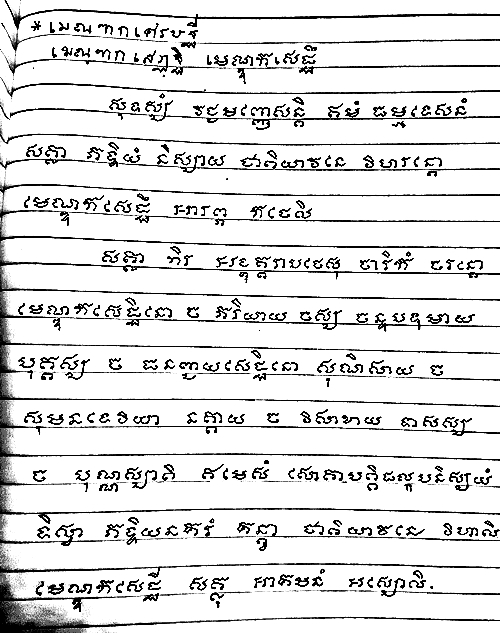 មេណ្ឌកសេដ្ឋី
សុទស្សំ វជ្ជមញ្ញេសន្តិ ឥមំ ធម្មទេសនំ
សត្ថា ភទ្ទិយំ និស្សាយ ជាតិយាវនេ វិហរន្តោ
មេណ្ឌកសេដ្ឋឹ អារព្ភ កថេសិ
សត្ថា កិរ អង្គុត្តរាបថេសុ ចារិកំ ចរន្តោ
មេណ្ឌកសេដ្ឋិនោ ច ភរិយាយ ចស្ស ចន្ទបទុមាយ
បុត្តស្ស ច ធនញ្ជយសេដ្ឋិនោ សុណិសាយ ច
សុមនទេវិយា នត្តាយ ច វិសាខាយ ទាសស្ស
ច បុណ្ណស្សាតិ ឥមេសំ សោតាបត្តិផលូបនិស្សយំ
ទិស្វា ភទ្ទិយនគរំ គន្ត្វា ជាតិយាវនេ វិហាសិ
មេណ្ឌកសេដ្ឋី សត្ថុ អាគមនំ អស្សោសិ.